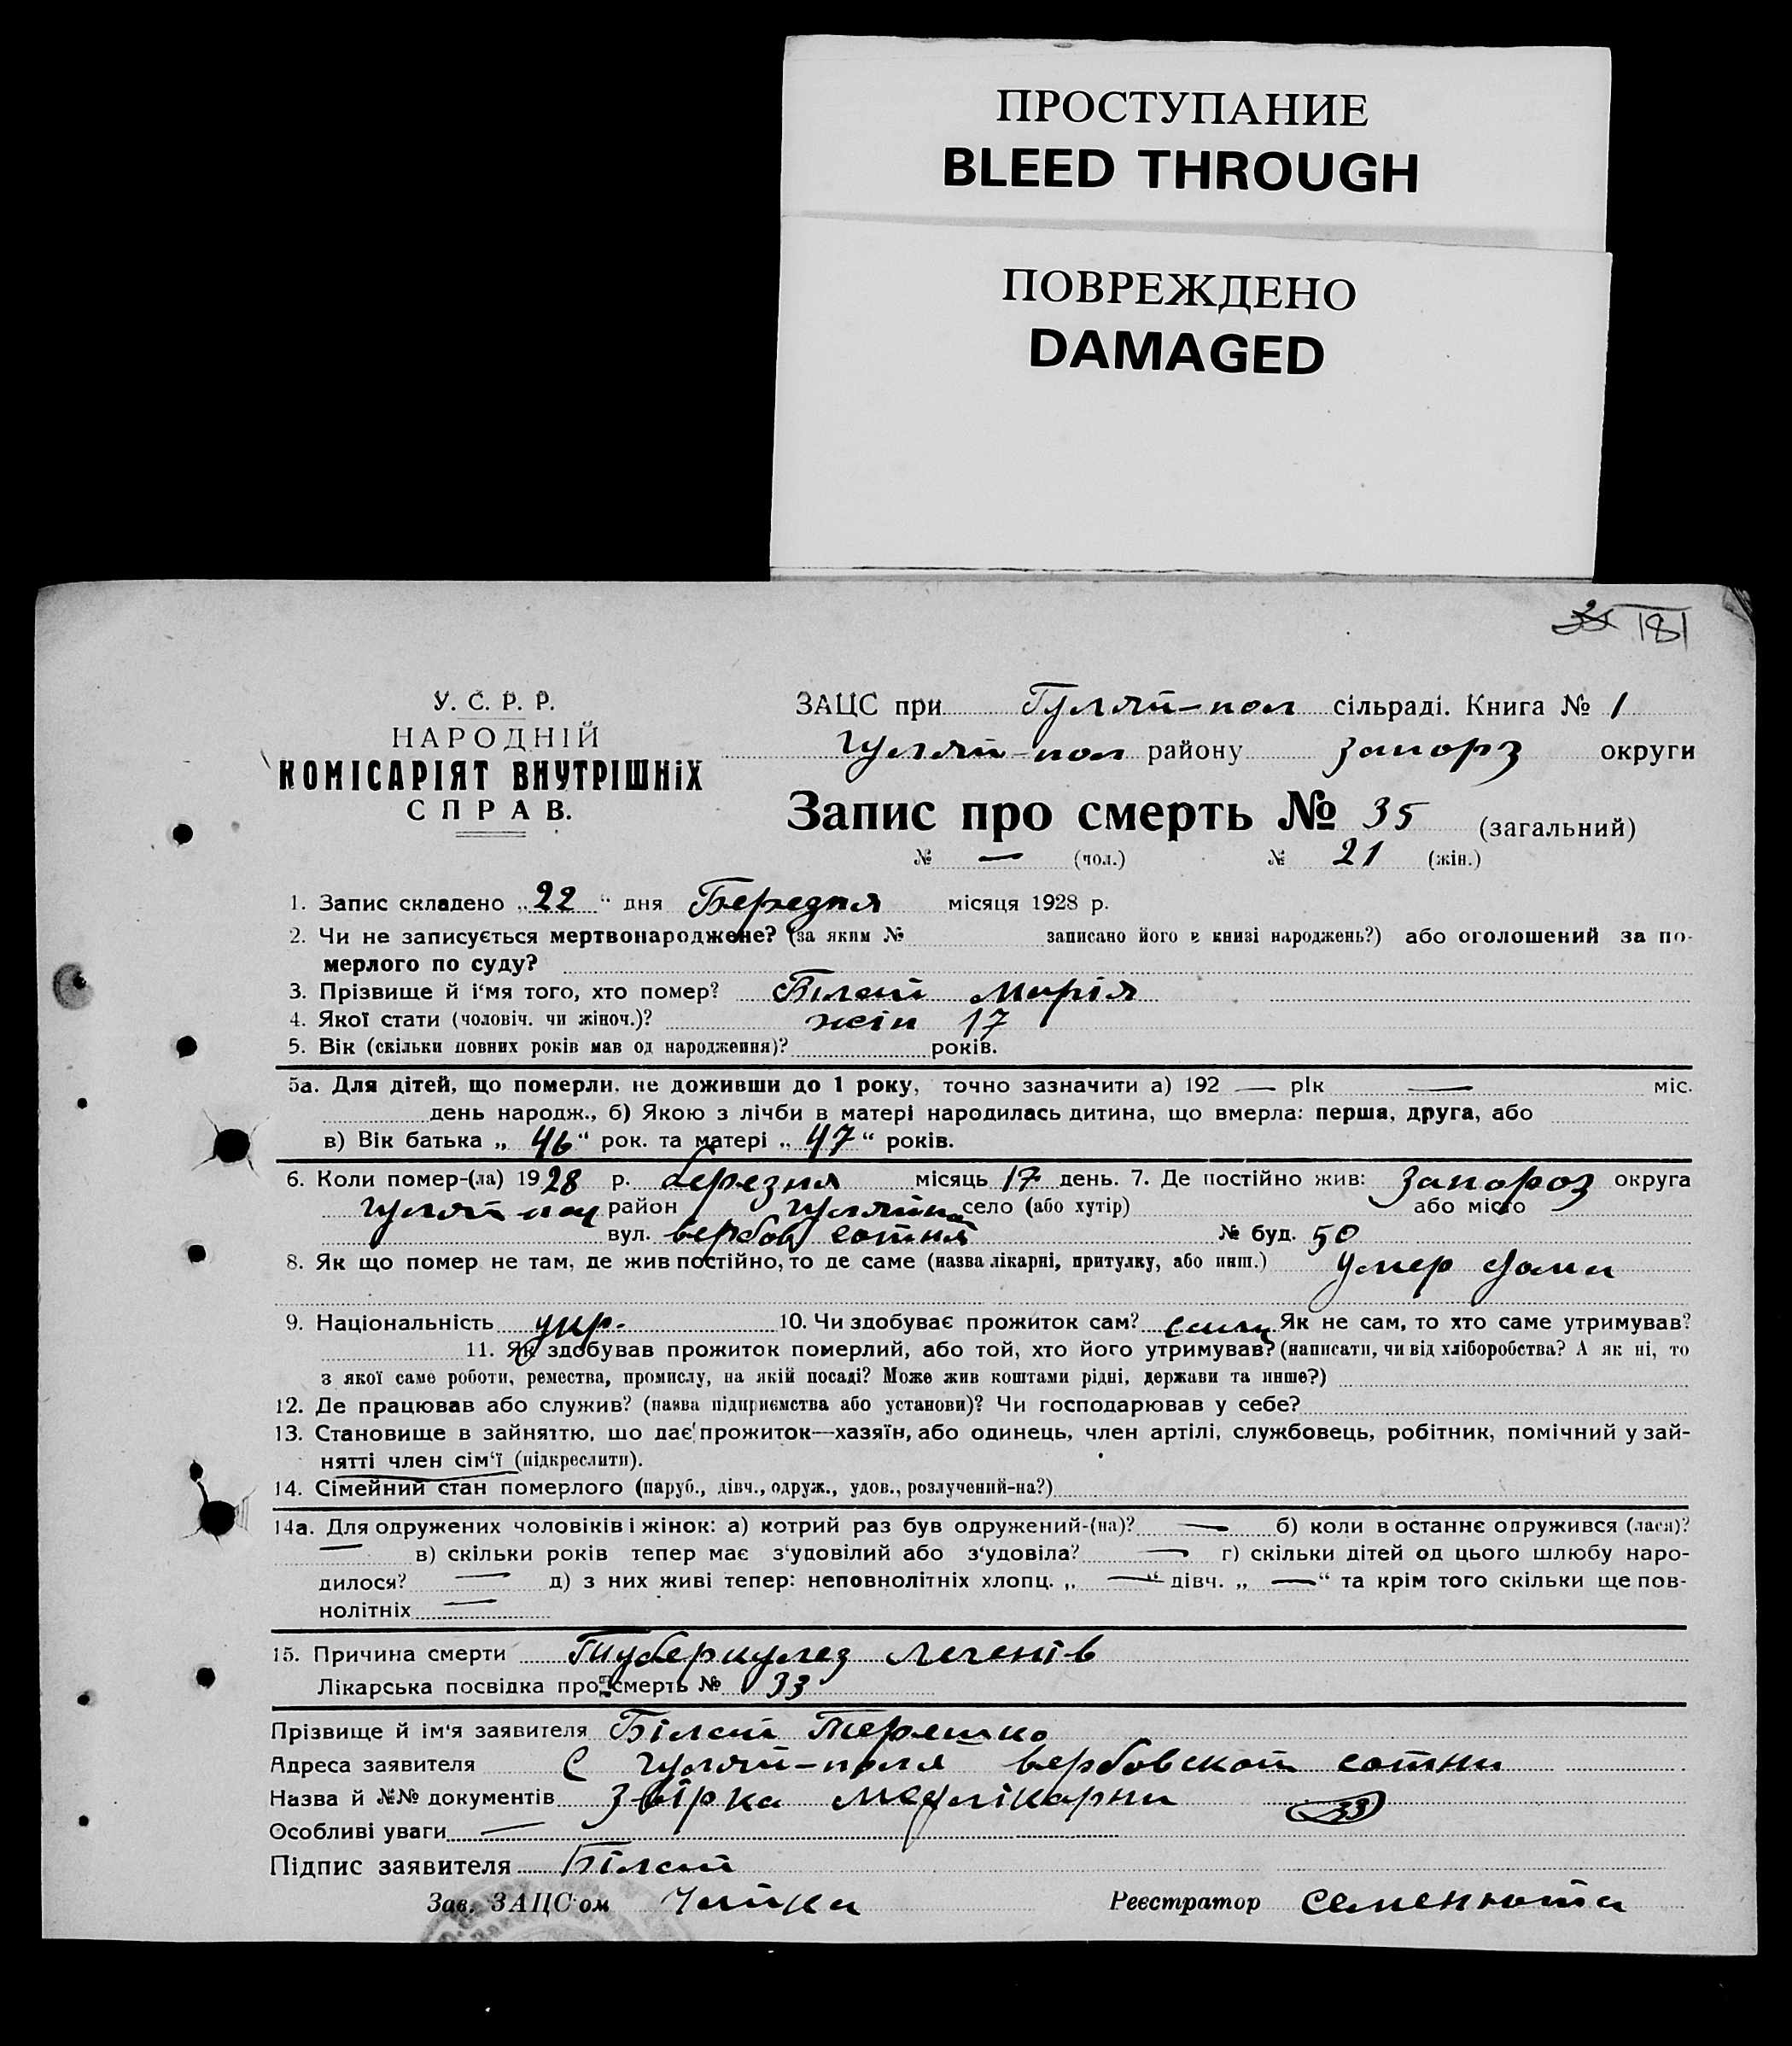 ПРОСТУПАНИЕ
BLEED THROUGH
ПОВРЕЖДЕНО
DAMAGED
181
У. С. Р. Р.
НАРОДНІЙ
КОМІСАРІЯТ ВНУТРІШНІХ
СПРАВ.
ЗАЦС при Гуляй-пол сільраді. Книга № 1
Гуляй-пол району Запорз округи
Запис про смерть № 35 (загальний)
№ — (чол.) № 21 (жін.)
1. Запис складено „22“ дня Березня місяця 1928 р.
2. Чи не записується мертвонароджене? (за яким № записано його в книзі народжень?) або оголошений за по-
мерлого по суду?
3. Прізвище й і'мя того, хто помер? Білай Марія
4. Якої стати (чоловіч. чи жіноч.)? жін 17
5. Вік (скільки повних років мав од народження)? років.
5а. Для дітей, що померли, не доживши до 1 року, точно зазначити а) 192 — рік — міс.
день народж., б) Якою з лічби в матері народилась дитина, що вмерла: перша, друга, або
в) Вік батька „46“ рок. та матері „47“ років.
6. Коли помер-(ла) 1928 р. березня місяць 17 день. 7. Де постійно жив: Запороз округа
Гуляй пол район село (або хутір) або місто
вул. вербов сотня № буд. 50
8. Як що помер не там, де жив постійно, то де саме (назва лікарні, притулку, або инш.) Умер дома
9. Національність укр. 10. Чи здобуває прожиток сам? Як не сам, то хто саме утримував?
11. Як здобував прожиток померлий, або той, хто його утримував? (написати, чи від хліборобства? А як ні, то
з якої саме роботи, ремества, промислу, на якій посаді? Може жив коштами рідні, держави та инше?)
12. Де працював або служив? (назва підприємства або установи)? Чи господарював у себе?
13. Становище в зайняттю, що дає прожиток—хазяїн, або одинець, член артілі, службовець, робітник, помічний у зай-
нятті член сім'ї (підкреслити).
14. Сімейний стан померлого (паруб., дівч., одруж., удов., розлучений-на?)
14а. Для одружених чоловіків і жінок: а) котрий раз був одружений-(на)? — б) коли в останнє одружився (лася)?
— в) скільки років тепер має з'удовілий або з'удовіла? — г) скільки дітей од цього шлюбу наро-
дилося? — д) з них живі тепер: неповнолітніх хлопц. „—“ дівч. „—“ та крім того скільки ще пов-
нолітніх —
15. Причина смерти Туберкулез легенів
Лікарська посвідка про смерть № 33
Прізвище й ім'я заявителя Білай Терешко
Адреса заявителя С Гуляй-поля вербовской сотни
Назва й №№ документів лікарни 33
Особливі уваги —
Підпис заявителя Білай
Зав. ЗАЦС'ом Чайка Реєстратор Семенюта